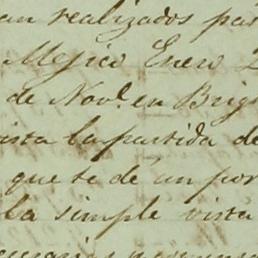 an realizados pa
Mejico Enero 2
de Nov.e en Brig
ista la partida de
que se dé un por
La simple vista